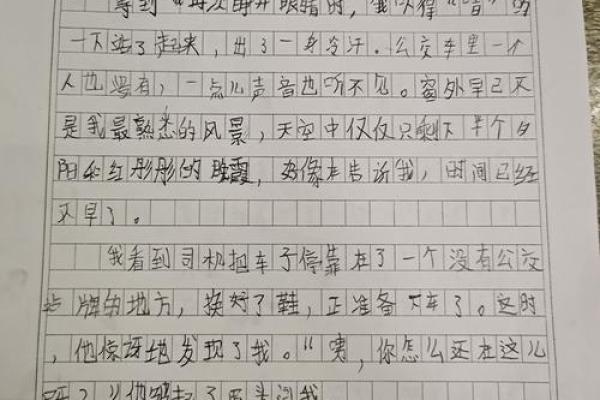 等到我再次睁开眼睛时，我以得“噌”的
一下站了起来，出了一身冷汗。公交车里一个
人也没有，一点儿声音也听不见。窗外早已不
是我最熟悉的风景，天空中仅仅只剩下半个夕
阳和红彤彤的晚霞，好像在告诉我，时间已经
不早了。
我看到司机把车子停靠在了一个没有公交
站牌的地方，换好了鞋，正准备下车了。这时
，他惊讶地发现了我。“嘿，你怎么还在这儿
呀？”他皱起了眉头问我